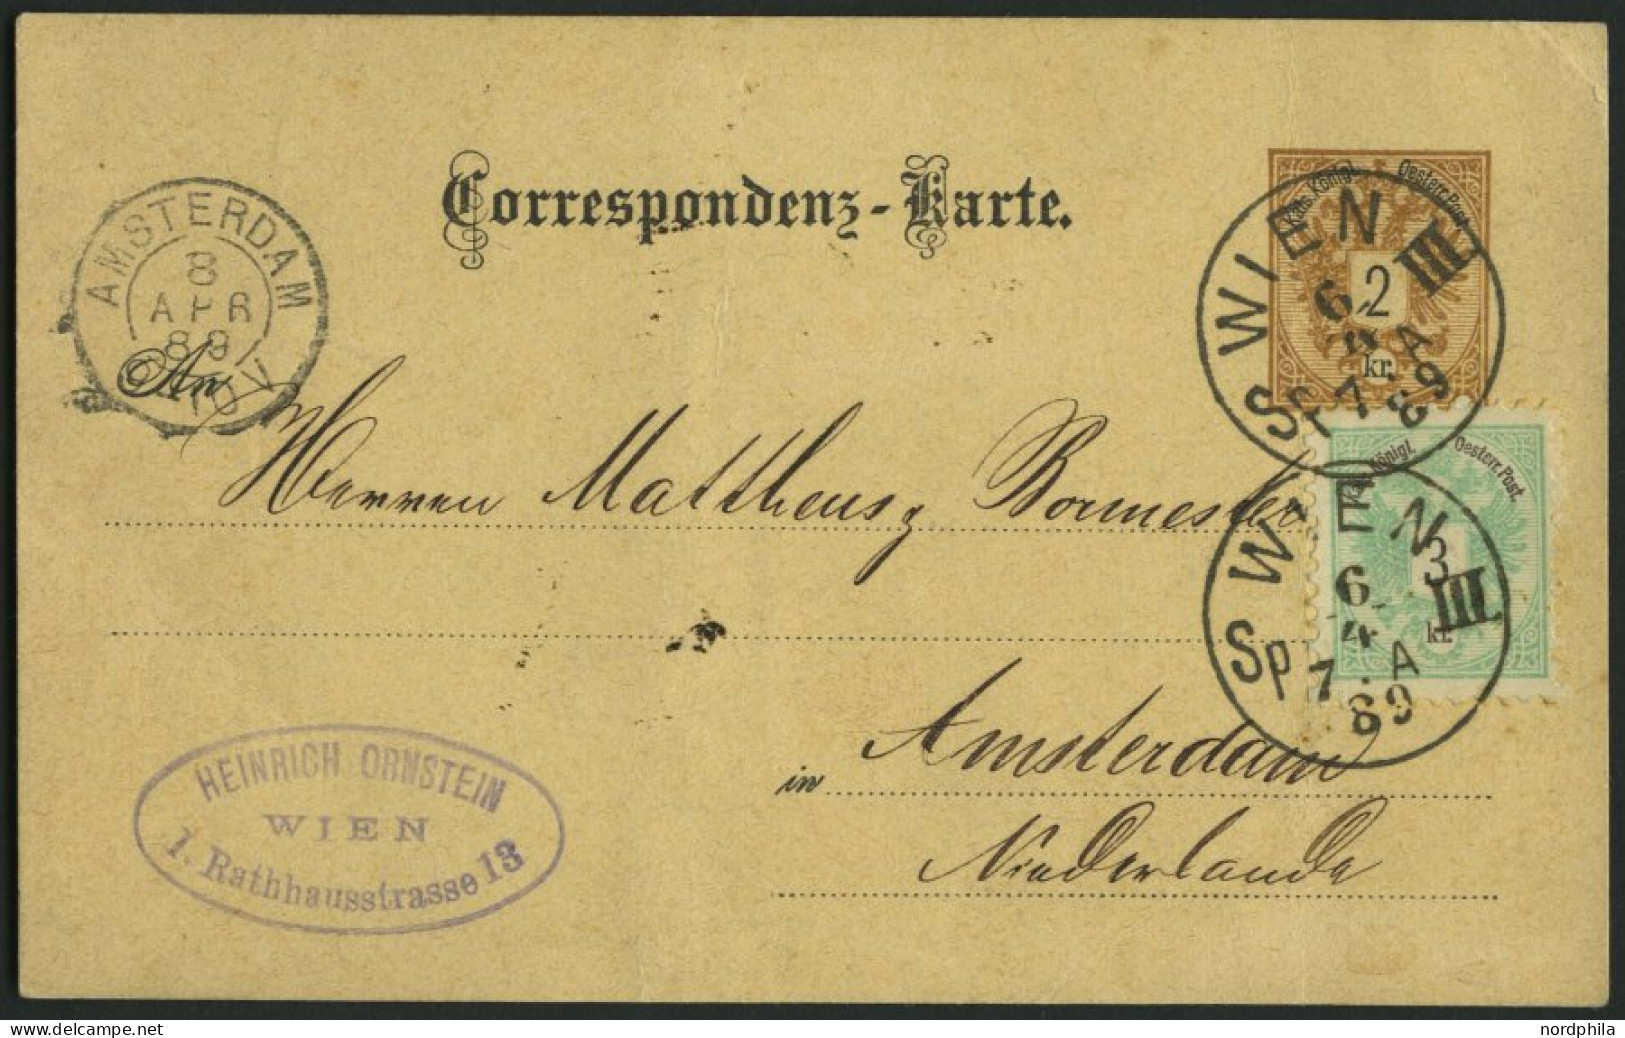 Correspondenz-Karte.
Kais. Königl. Oesterr. Post
2
kr.
WIEN III.
6/4
7.A
89
AMSTERDAM
8
APR
89
10V
An
Herren Mattheus &
Königl. Oesterr. Post.
3
kr.
WIEN III.
6/4
Sp 7.A
89
in Amsterdam
Niederlande
HEINRICH ORNSTEIN
WIEN
1. Rathhausstrasse 13
nordphila